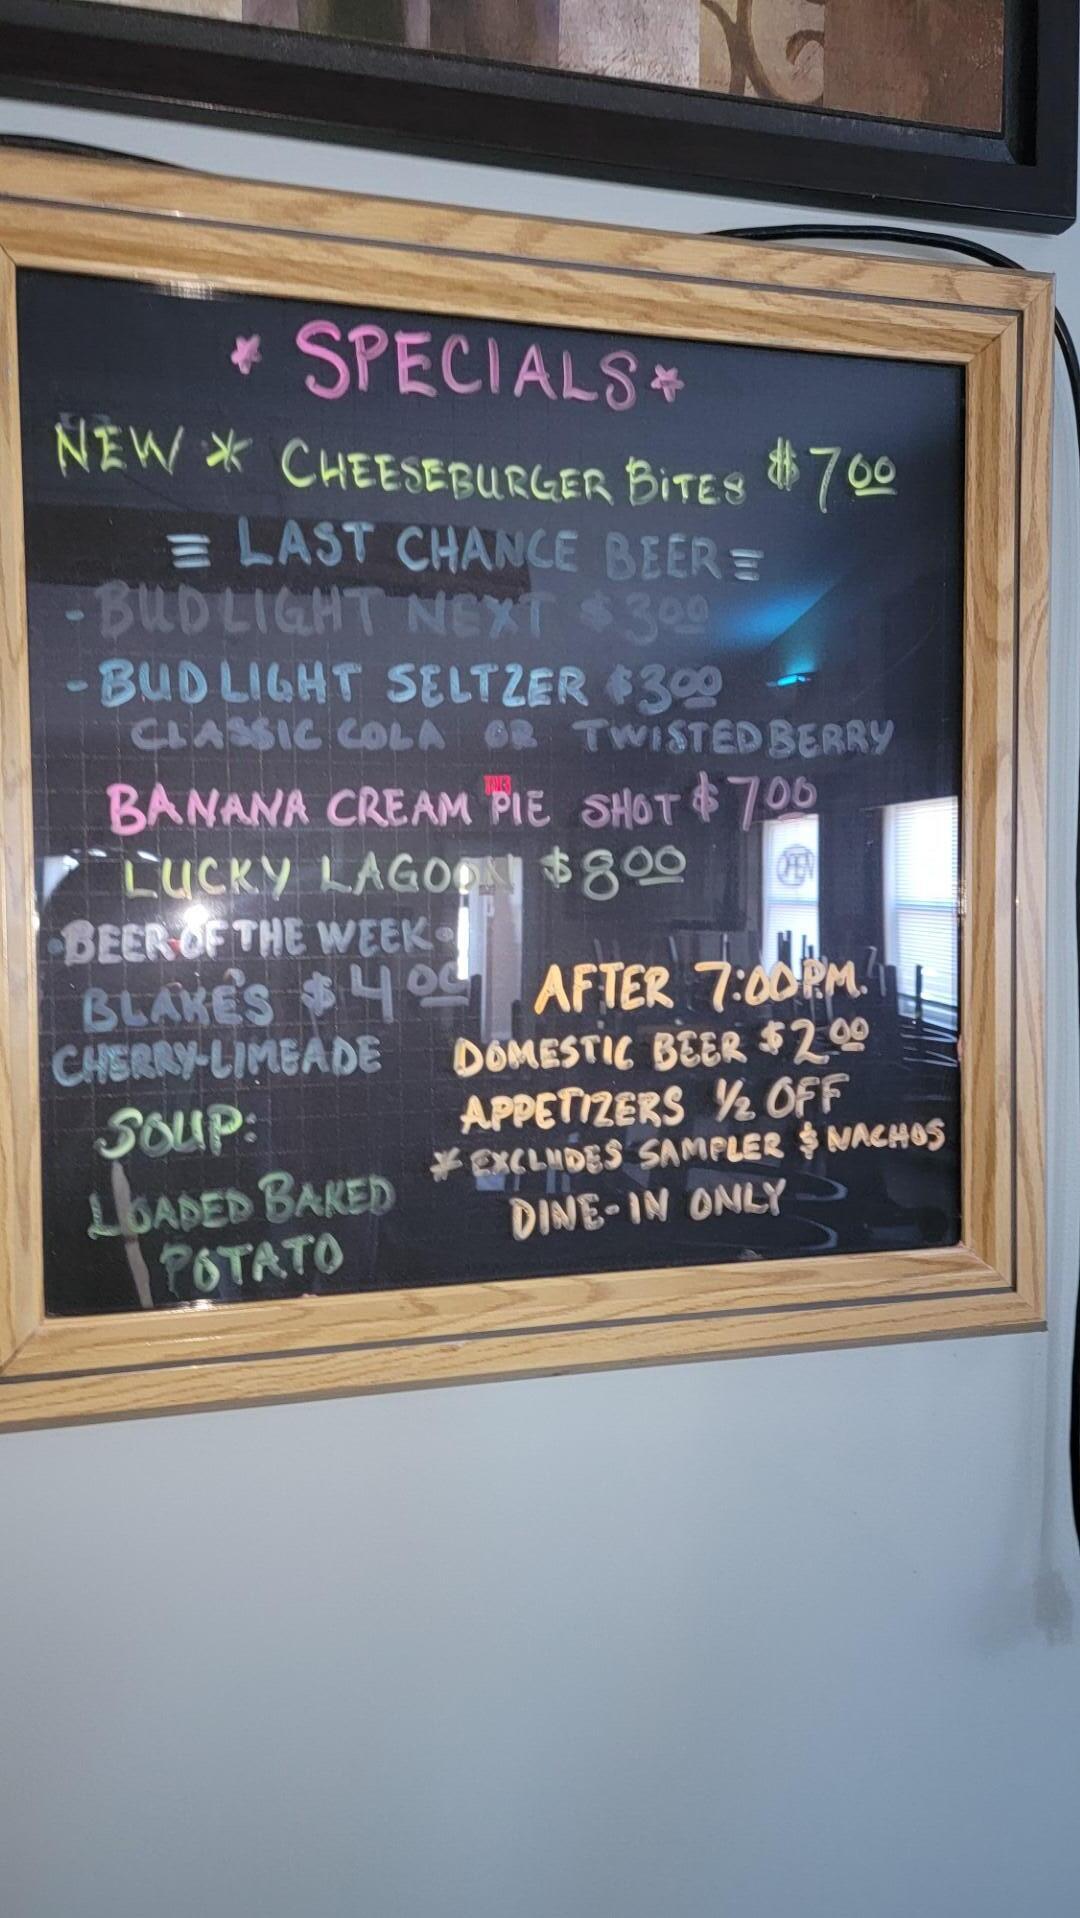 * SPECIALS *
NEW * CHEESEBURGER BITES $7.00
≡ LAST CHANCE BEER ≡
- BUD LIGHT NEXT $3.00
- BUD LIGHT SELTZER $3.00
CLASSIC COLA OR TWISTED BERRY
BANANA CREAM PIE SHOT $7.00
LUCKY LAGOON $8.00
• BEER OF THE WEEK •
BLAKE'S $4.00
CHERRY-LIMEADE
SOUP:
LOADED BAKED
POTATO
AFTER 7:00 P.M.
DOMESTIC BEER $2.00
APPETIZERS 1/2 OFF
* EXCLUDES SAMPLER & NACHOS
DINE-IN ONLY